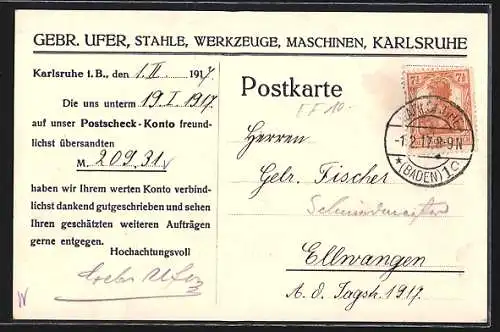 GEBR. UFER, STAHLE, WERKZEUGE, MASCHINEN, KARLSRUHE
Karlsruhe i. B., den 1. II. 1917.
Die uns unterm 19. I. 1917.
auf unser Postscheck-Konto freund-
lichst übersandten
M. 209.31
haben wir Ihrem werten Konto verbind-
lichst dankend gutgeschrieben und sehen
Ihren geschätzten weiteren Aufträgen
gerne entgegen.
Hochachtungsvoll
Gebr Ufer
Postkarte
EF 10.-
Herren
Gebr. Fischer
Ellwangen
A. d. Jagst. 1917.
7½ 7½
-1.2.17.8-9N
* (BADEN) 1